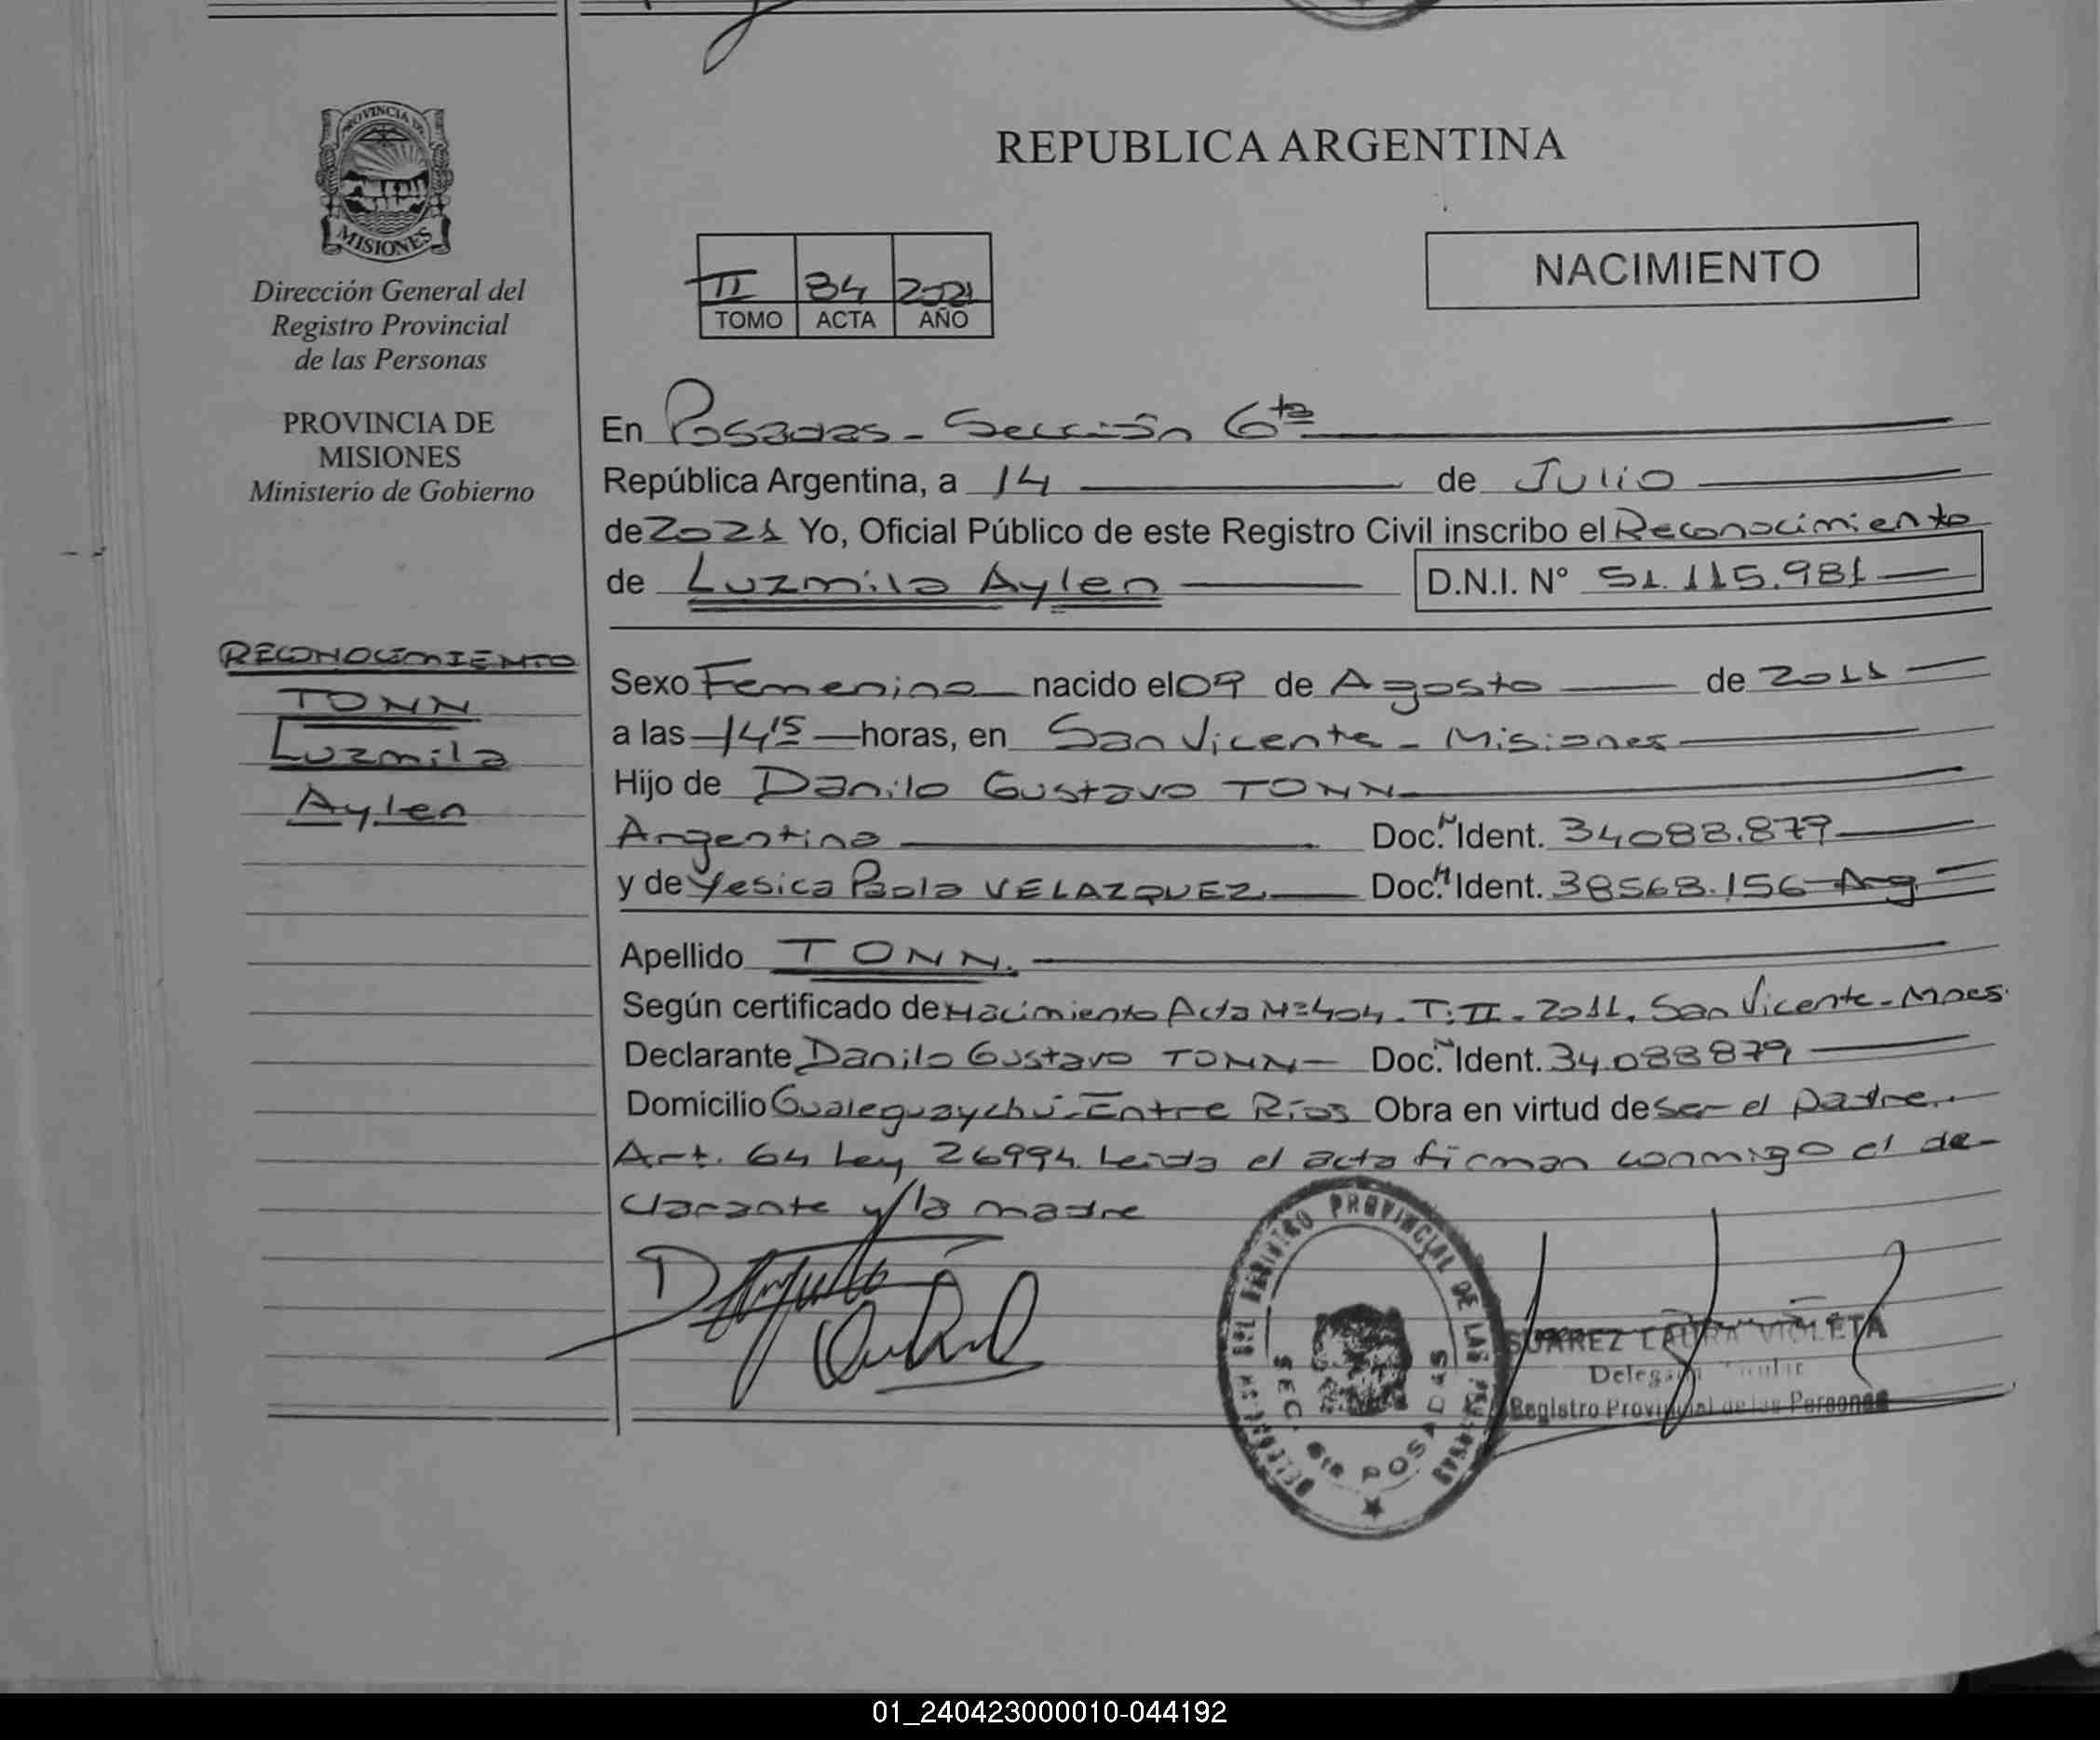 PROVINCIA DE
MISIONES
Dirección General del
Registro Provincial
de las Personas
PROVINCIA DE
MISIONES
Ministerio de Gobierno
RECONOCIMIENTO
TONN
Luzmila
Aylen
REPUBLICA ARGENTINA
II 34 2021
TOMO ACTA AÑO
NACIMIENTO
En Posadas - Sección 6ta
República Argentina, a 14 de Julio
de 2021 Yo, Oficial Público de este Registro Civil inscribo el Reconocimiento
de Luzmila Aylen D.N.I. N° 51.115.981
Sexo Femenino nacido el 09 de Agosto de 2011
a las 14 15 horas, en San Vicente - Misiones
Hijo de Danilo Gustavo TONN
Argentino Doc. N Ident. 34088.879
y de Yesica Paola VELAZQUEZ. Doc. N Ident. 38568.156 - Arg
Apellido TONN.
Según certificado de Nacimiento Acta Nº 404. T: II - 2011. San Vicente - Mnes.
Declarante Danilo Gustavo TONN - Doc. N Ident. 34.088879
Domicilio Gualeguaychú - Entre Ríos Obra en virtud de ser el padre.
Art. 64 Ley 26994. Leída el acta firman conmigo el de-
clarante y la madre
REGISTRO PROVINCIAL DE LAS PERSONAS
SEC. 6ta POSADAS
SUAREZ LAURA VIOLETA
Registro Provincial de las Personas
01_240423000010-044192